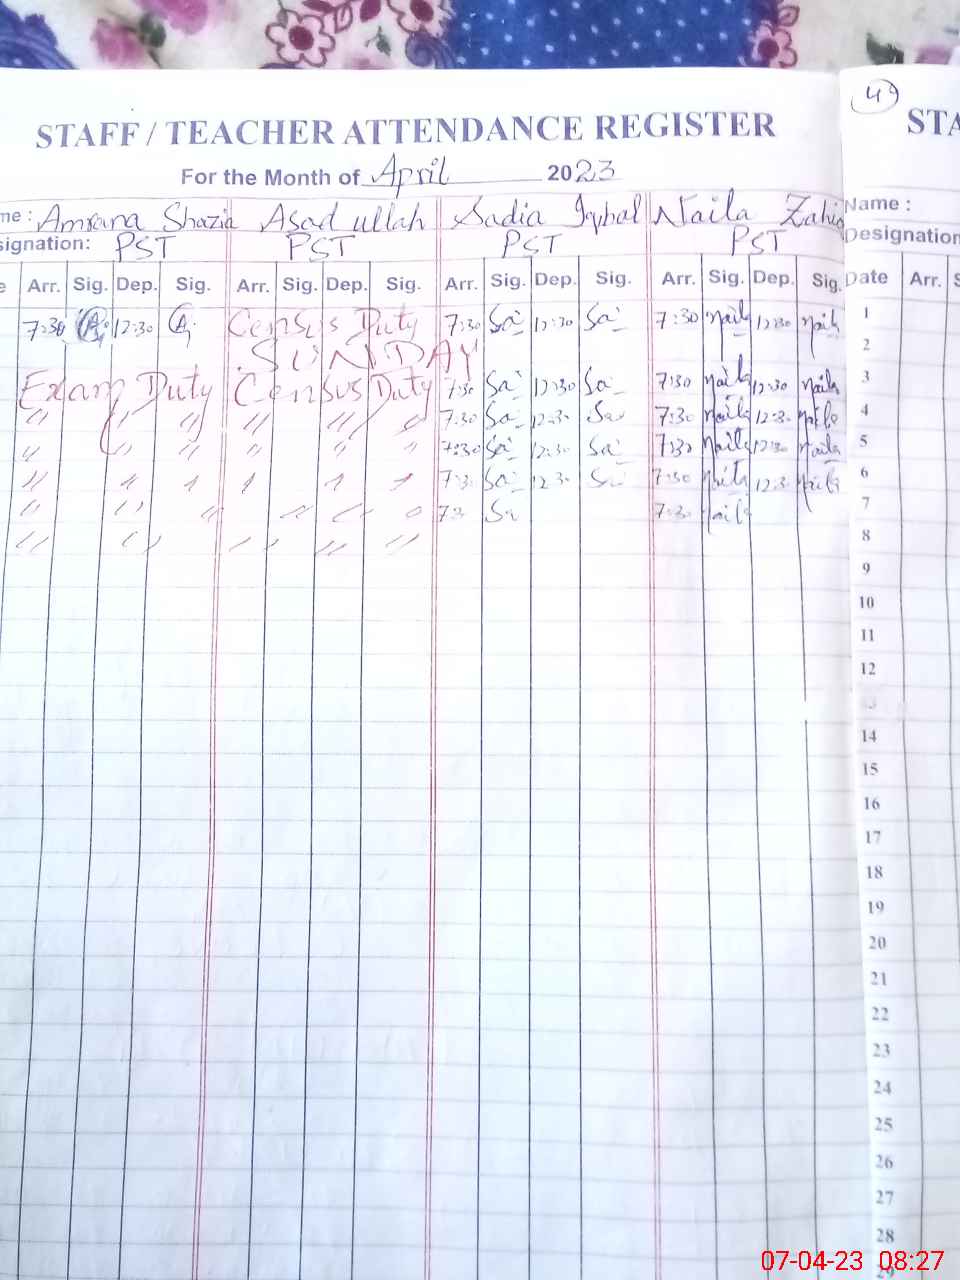 4
STAFF / TEACHER ATTENDANCE REGISTER STA
For the Month of April 2023
me : Amrana Shazia Asad ullah Sadia Iqbal Naila Zahid Name :
signation: PST PST PST PST Designation
e Arr. Sig. Dep. Sig. Arr. Sig. Dep. Sig. Arr. Sig. Dep. Sig. Arr. Sig. Dep. Sig. Date Arr. S
7:30 12:30 Census Duty 7:30 Sa 12:30 Sa 7:30 Naila 12:30 Naila 1
SUNDAY 2
Exam Duty Census Duty 7:30 Sa 12:30 Sa 7:30 Naila 12:30 Naila 3
" " " " " " " 7:30 Sa 12:30 Sa 7:30 Naila 12:30 Naila 4
" " " " " " " 7:30 Sa 12:30 Sa 7:30 Naila 12:30 Naila 5
" " " " " " " 7:30 Sa 12:30 Sa 7:30 Naila 12:30 Naila 6
" " " " " " 7:30 Sa 7:30 Naila 7
" " " " " 8
9
10
11
12
14
15
16
17
18
19
20
21
22
23
24
25
26
27
28
29
07-04-23 08:27